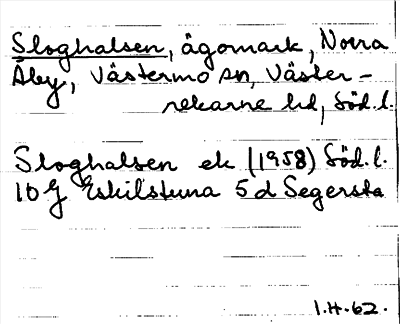 Sloghalsen, ägomark, Norra
Åby, Västermo sn, Väster-
rekarne hd, Söd.l.
Sloghalsen ek (1958) Söd.l.
10 G Eskilstuna 5 d Segersta
I.H.62.